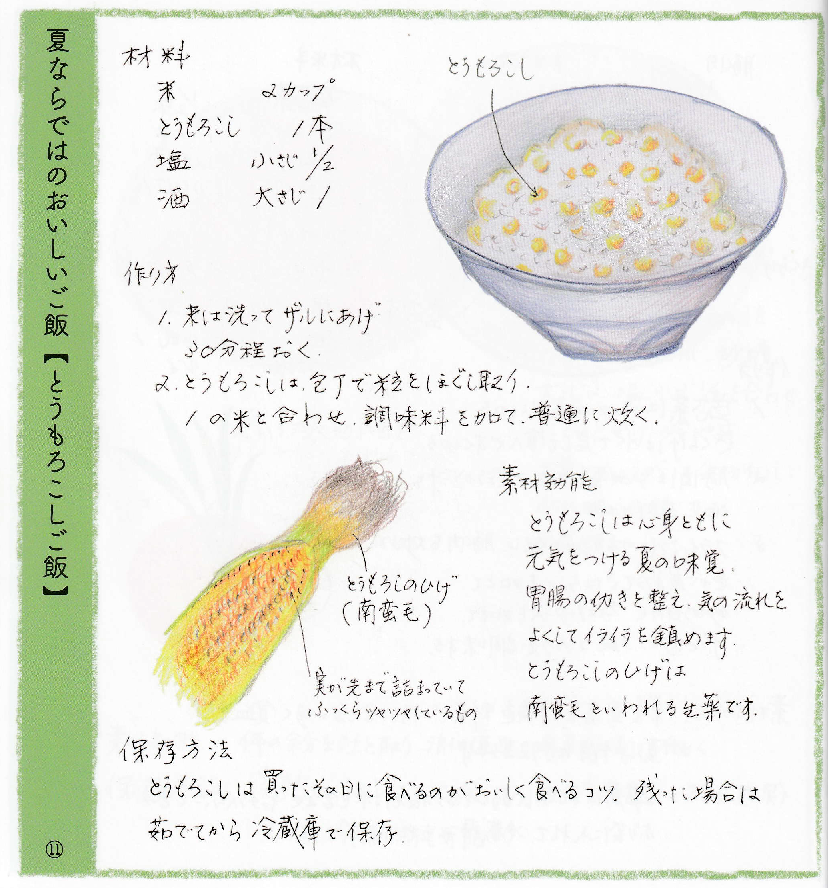 夏ならではのおいしいご飯【とうもろこしご飯】
⑪
材料
米 2カップ
とうもろこし 1本
塩 小さじ 1/2
酒 大さじ 1
とうもろこし
作り方
1. 米は洗って ザルにあげ
30分程おく.
2. とうもろこしは、包丁で粒をほぐし取り.
1の米と合わせ、調味料を加えて、普通に炊く.
とうもろこしのひげ
(南蛮毛)
実が先まで詰まっていて
ふっくらツヤツヤしているもの
素材効能
とうもろこしは心身ともに
元気をつける夏の味覚.
胃腸の働きを整え、気の流れを
よくしてイライラを鎮めます.
とうもろこしのひげは
南蛮毛といわれる生薬です.
保存方法
とうもろこしは 買ったその日に食べるのがおいしく食べるコツ. 残った場合は
茹でてから 冷蔵庫で保存.